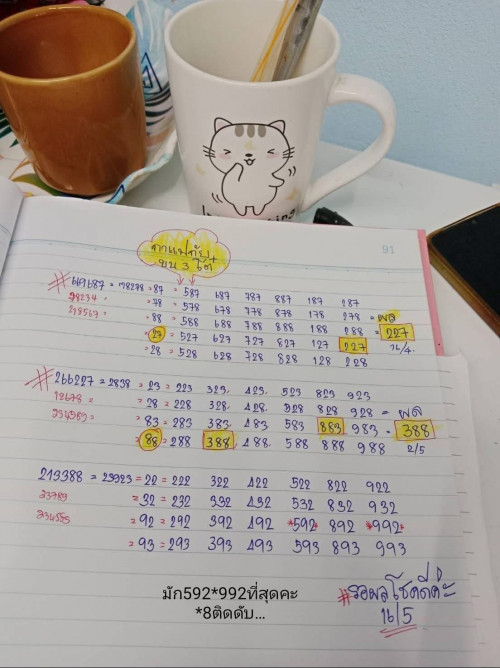 91
บน 3 ตัว
#667687 = 78278 = 87 = 587 687 787 887 187 287
78234 " = 78 = 578 678 778 878 178 278 = ผล
= 88 = 588 688 788 888 188 288 = 227
= 27 = 527 627 727 827 127 227 16/4.
= 28 = 528 628 728 828 128 228
#266227 = 2838 = 23 = 223 323. 423. 523 823 923
12678 " = 28 = 228 328. 428. 528 828 928 = ผล
234583 = = 83 = 283 383. 483 583 883 983 = 388
= 88 = 288 388 488. 588 888 988 2/5
219388 = 23923 = 22 = 222 322 422 522 822 922
23789 = 32 = 232 332 432 532 832 932
234555 = 92 = 292 392 492 *592* 892 *992*
= 93 = 293 393 493 593 893 993
มัก592*992ที่สุดคะ
*8ติดดับ...
#รอผลโชคดีค่ะ
16/5